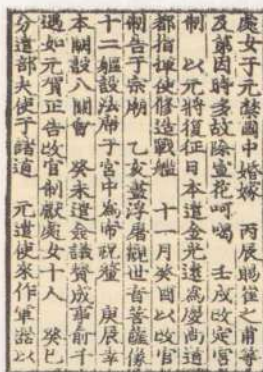 處女于元禁國中婚嫁　丙辰賜崔之甫等
及第因時多故除宣花呵喝　壬戌改定官
制　以元將復征日本遣金光遠爲慶尚道
都指揮使修造戰艦　十一月癸酉以改官
制告于宗廟　乙亥畫浮屠觀世音菩薩像
十二軀設法席于宮中爲帝祝釐　庚辰幸
本闕設八關會　癸未遣僉議贊成事俞千
遇如元賀正告改官制獻處女十人　癸巳
分遣部夫使于諸道　元遣使來作軍器以